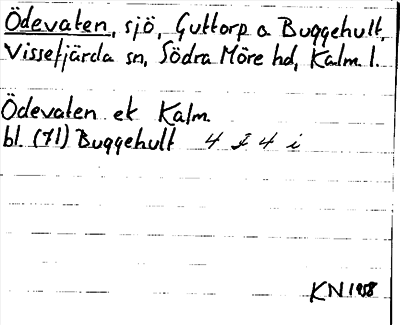 Ödevaten, sjö, Guttorp o Buggehult,
Vissefjärda sn, Södra Möre hd, Kalm. l.
Ödevaten ek Kalm.
bl. (71) Buggehult 4 F 4 i
KN 1958